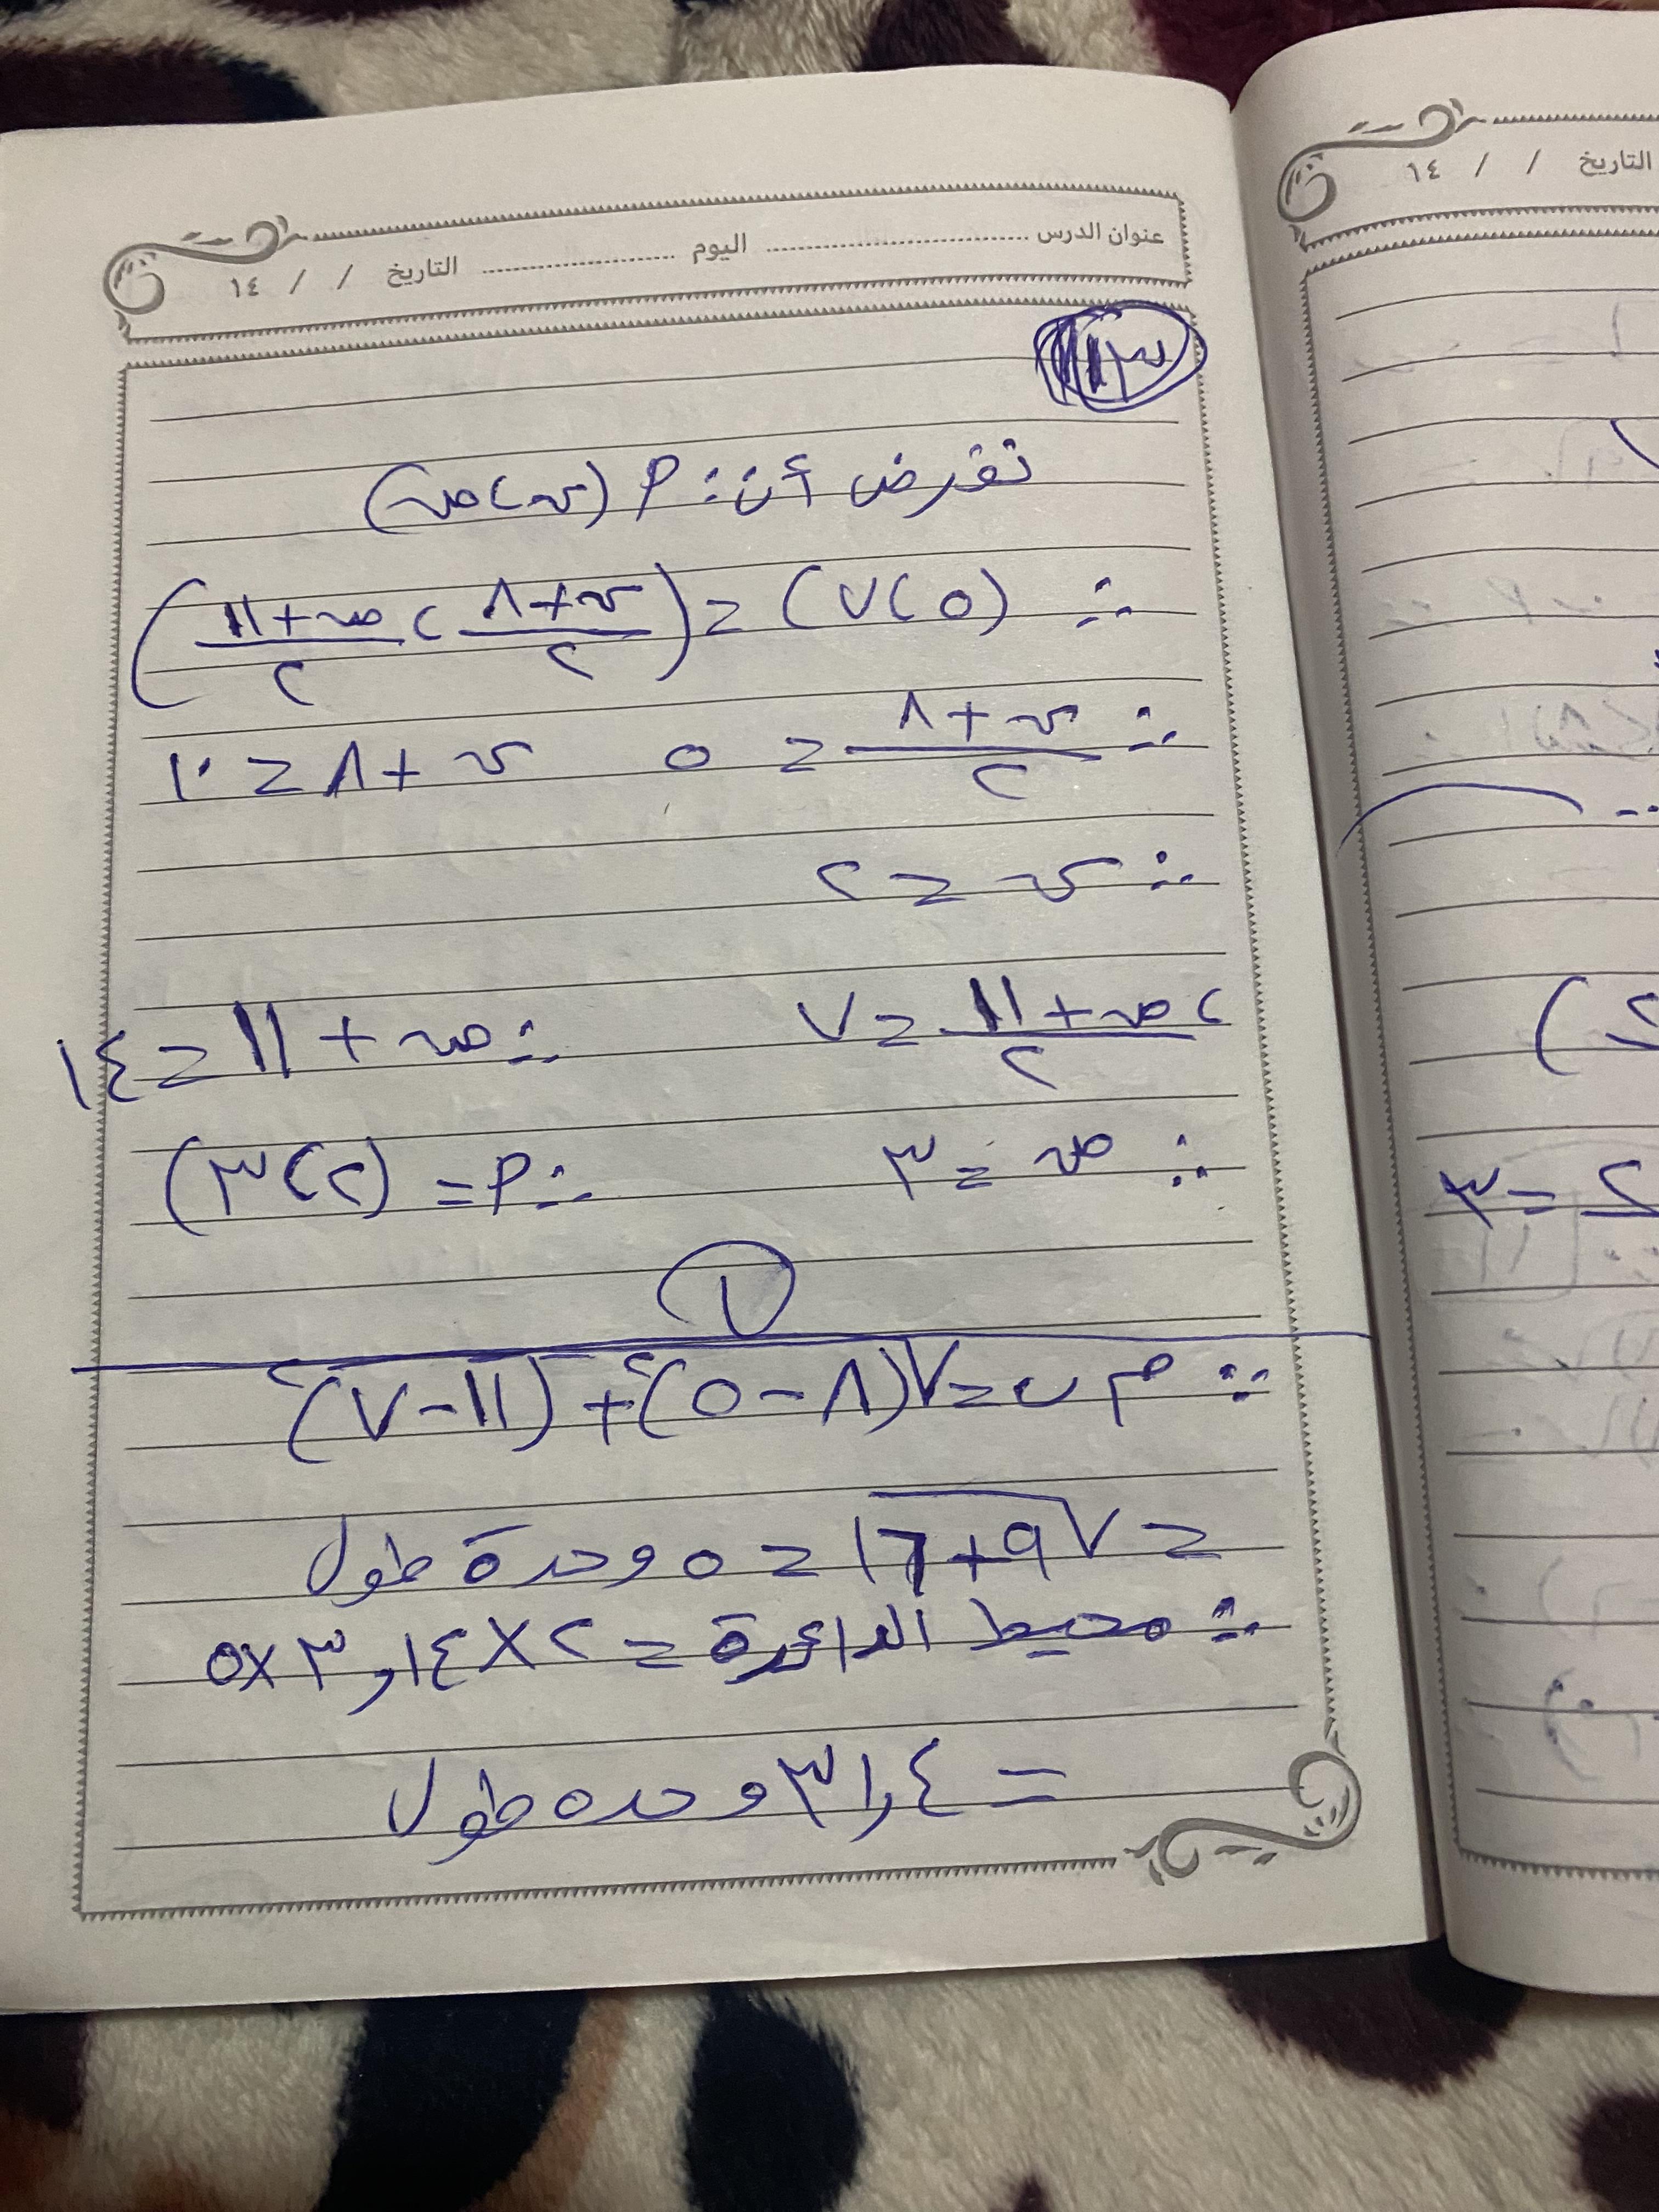 عنوان الدرس ........ اليوم ........ التاريخ / / ١٤
١٣
نفرض أن: م (س، ص)
∴ (٥، ٧) = (س + ٨ / ٢ ، ص + ١١ / ٢)
∴ س + ٨ / ٢ = ٥ س + ٨ = ١٠
∴ س = ٢
، ص + ١١ / ٢ = ٧ ∴ ص + ١١ = ١٤
∴ ص = ٣ ∴ م = (٢، ٣)
١
∴ م ب = √(٨ − ٥)٢ + (١١ − ٧)٢
= √٩ + ١٦ = ٥ وحدة طول
∴ محيط الدائرة = ٢ × ٣,١٤ × ٥
= ٣١,٤ وحده طول
التاريخ / / ١٤